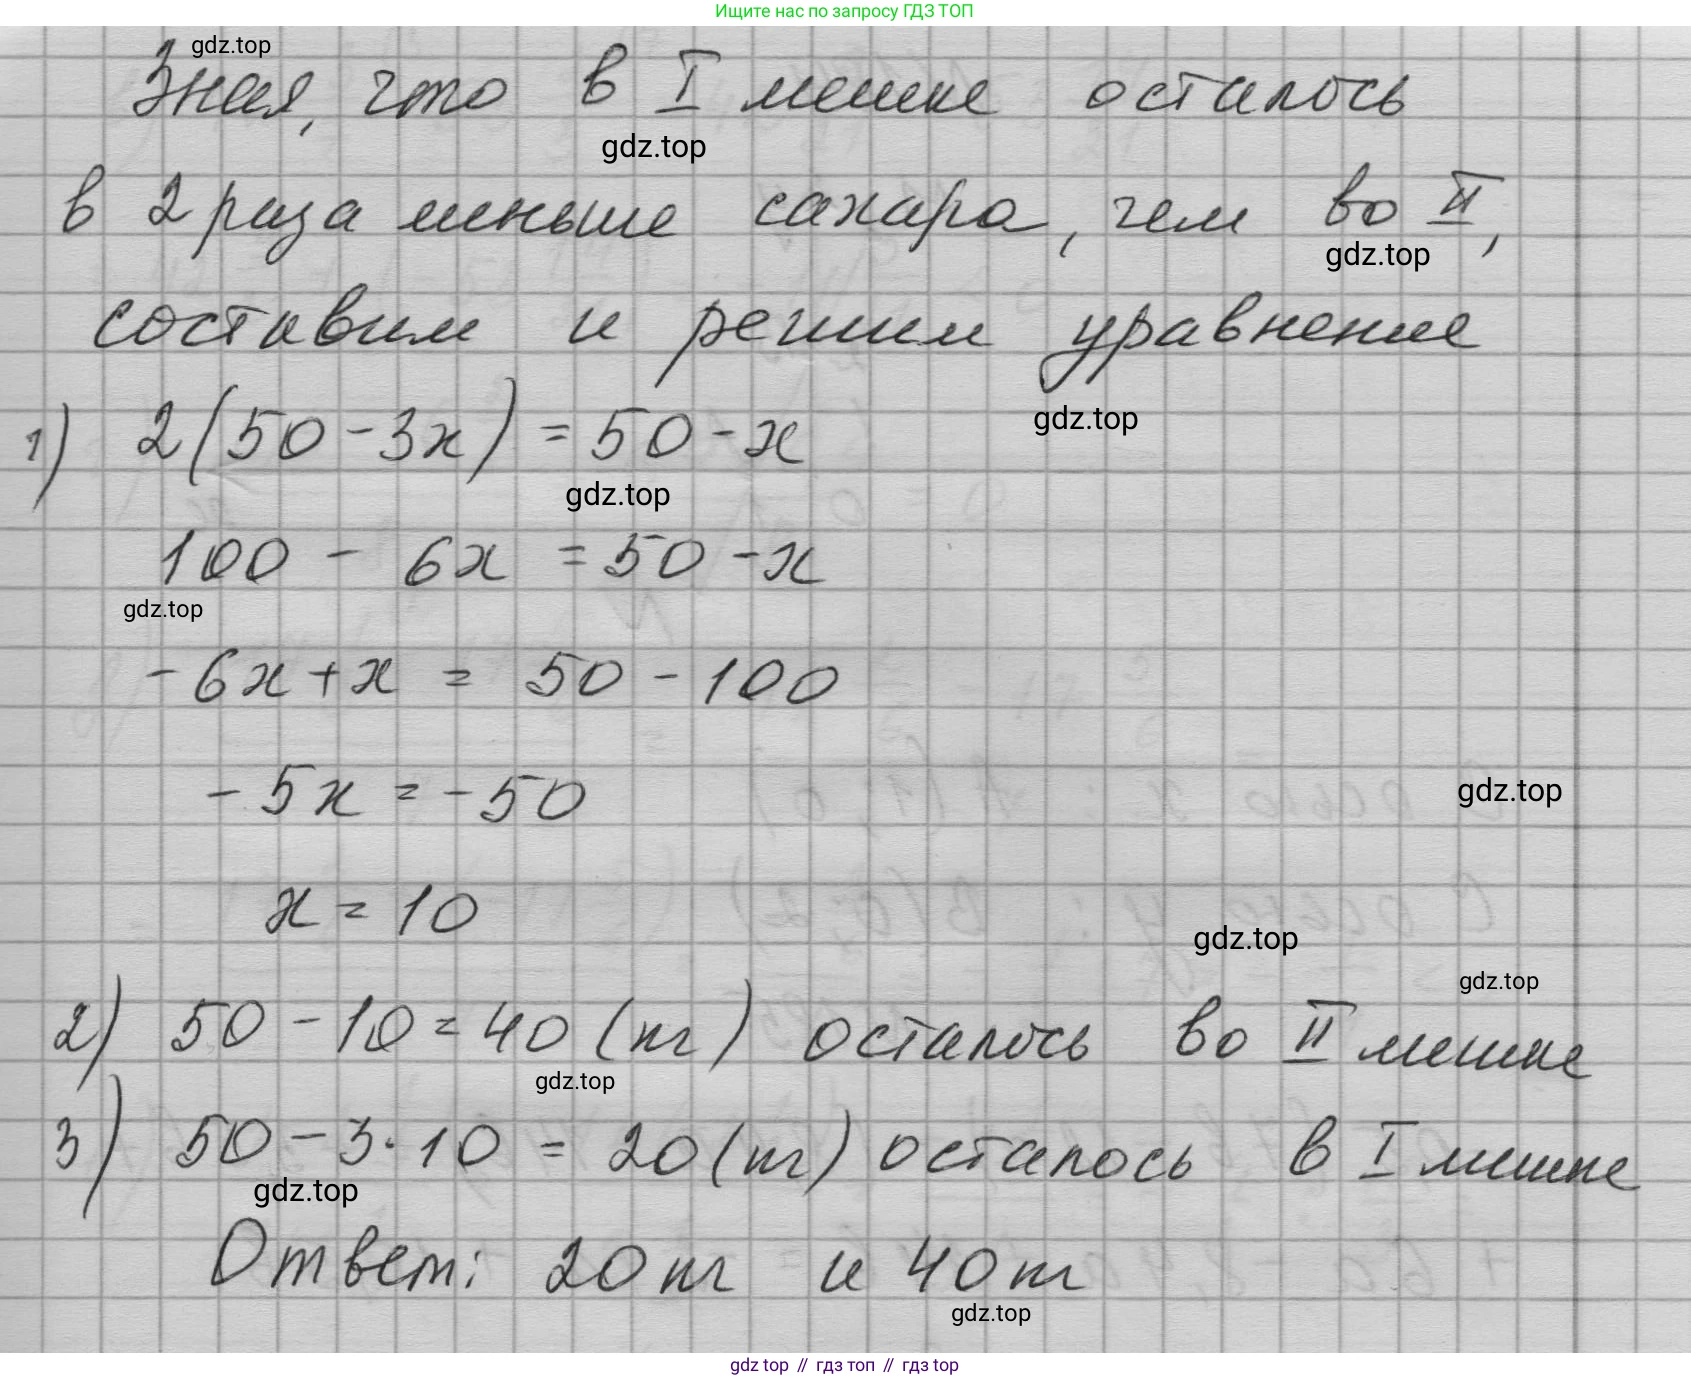 Ищите нас по запросу ГДЗ ТОП
gdz.top
Зная, что в I мешке осталось
gdz.top
в 2 раза меньше сахара, чем во II,
gdz.top
составим и решим уравнение
gdz.top
1) 2(50-3x) = 50-x
gdz.top
100 - 6x = 50-x
gdz.top
-6x+x = 50-100
-5x = -50
gdz.top
x = 10
gdz.top
gdz.top
2) 50-10=40 (кг) осталось во II мешке
gdz.top
3) 50-3·10 = 20 (кг) осталось в I мешке
gdz.top
Ответ: 20 кг и 40 кг
gdz.top
gdz top // гдз топ // гдз top